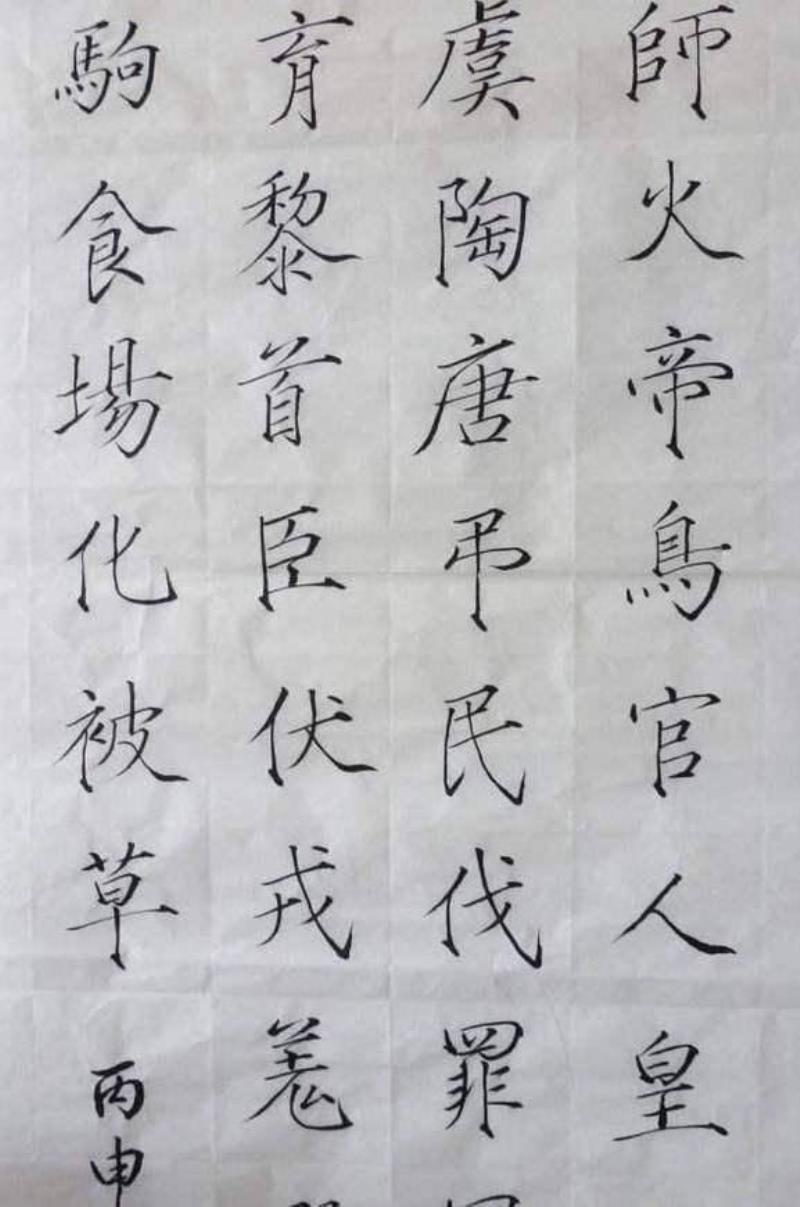 師火帝鳥官人皇
虞陶唐弔民伐罪
育黎首臣伏戎羌
駒食場化被草
丙申